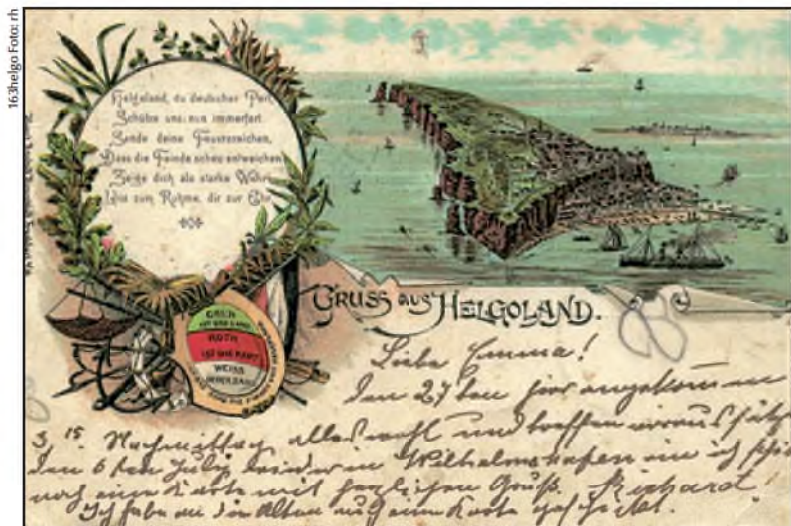 163helgo Foto: rh
Helgoland, du deutscher Port,
Schütze uns nun immerfort
Sende deine Feuerzeichen,
Dass die Feinde scheu entweichen
Zeige dich als starke Wehr,
Uns zum Ruhme, dir zur Ehr
GRUSS aus HELGOLAND.
GRÜN
IST DAS LAND
ROTH
IST DIE KANT
WEISS
IST DER SAND
Liebe Emma!
Den 27ten hier angekommen
3,15 Nachmittag alles wohl und treffen
den 6ten July wieder in Wilhelmshafen ein ich
noch eine Karte mit herzlichen Gruß. Richard!
Ich habe an die Alten auch eine Karte geschickt.